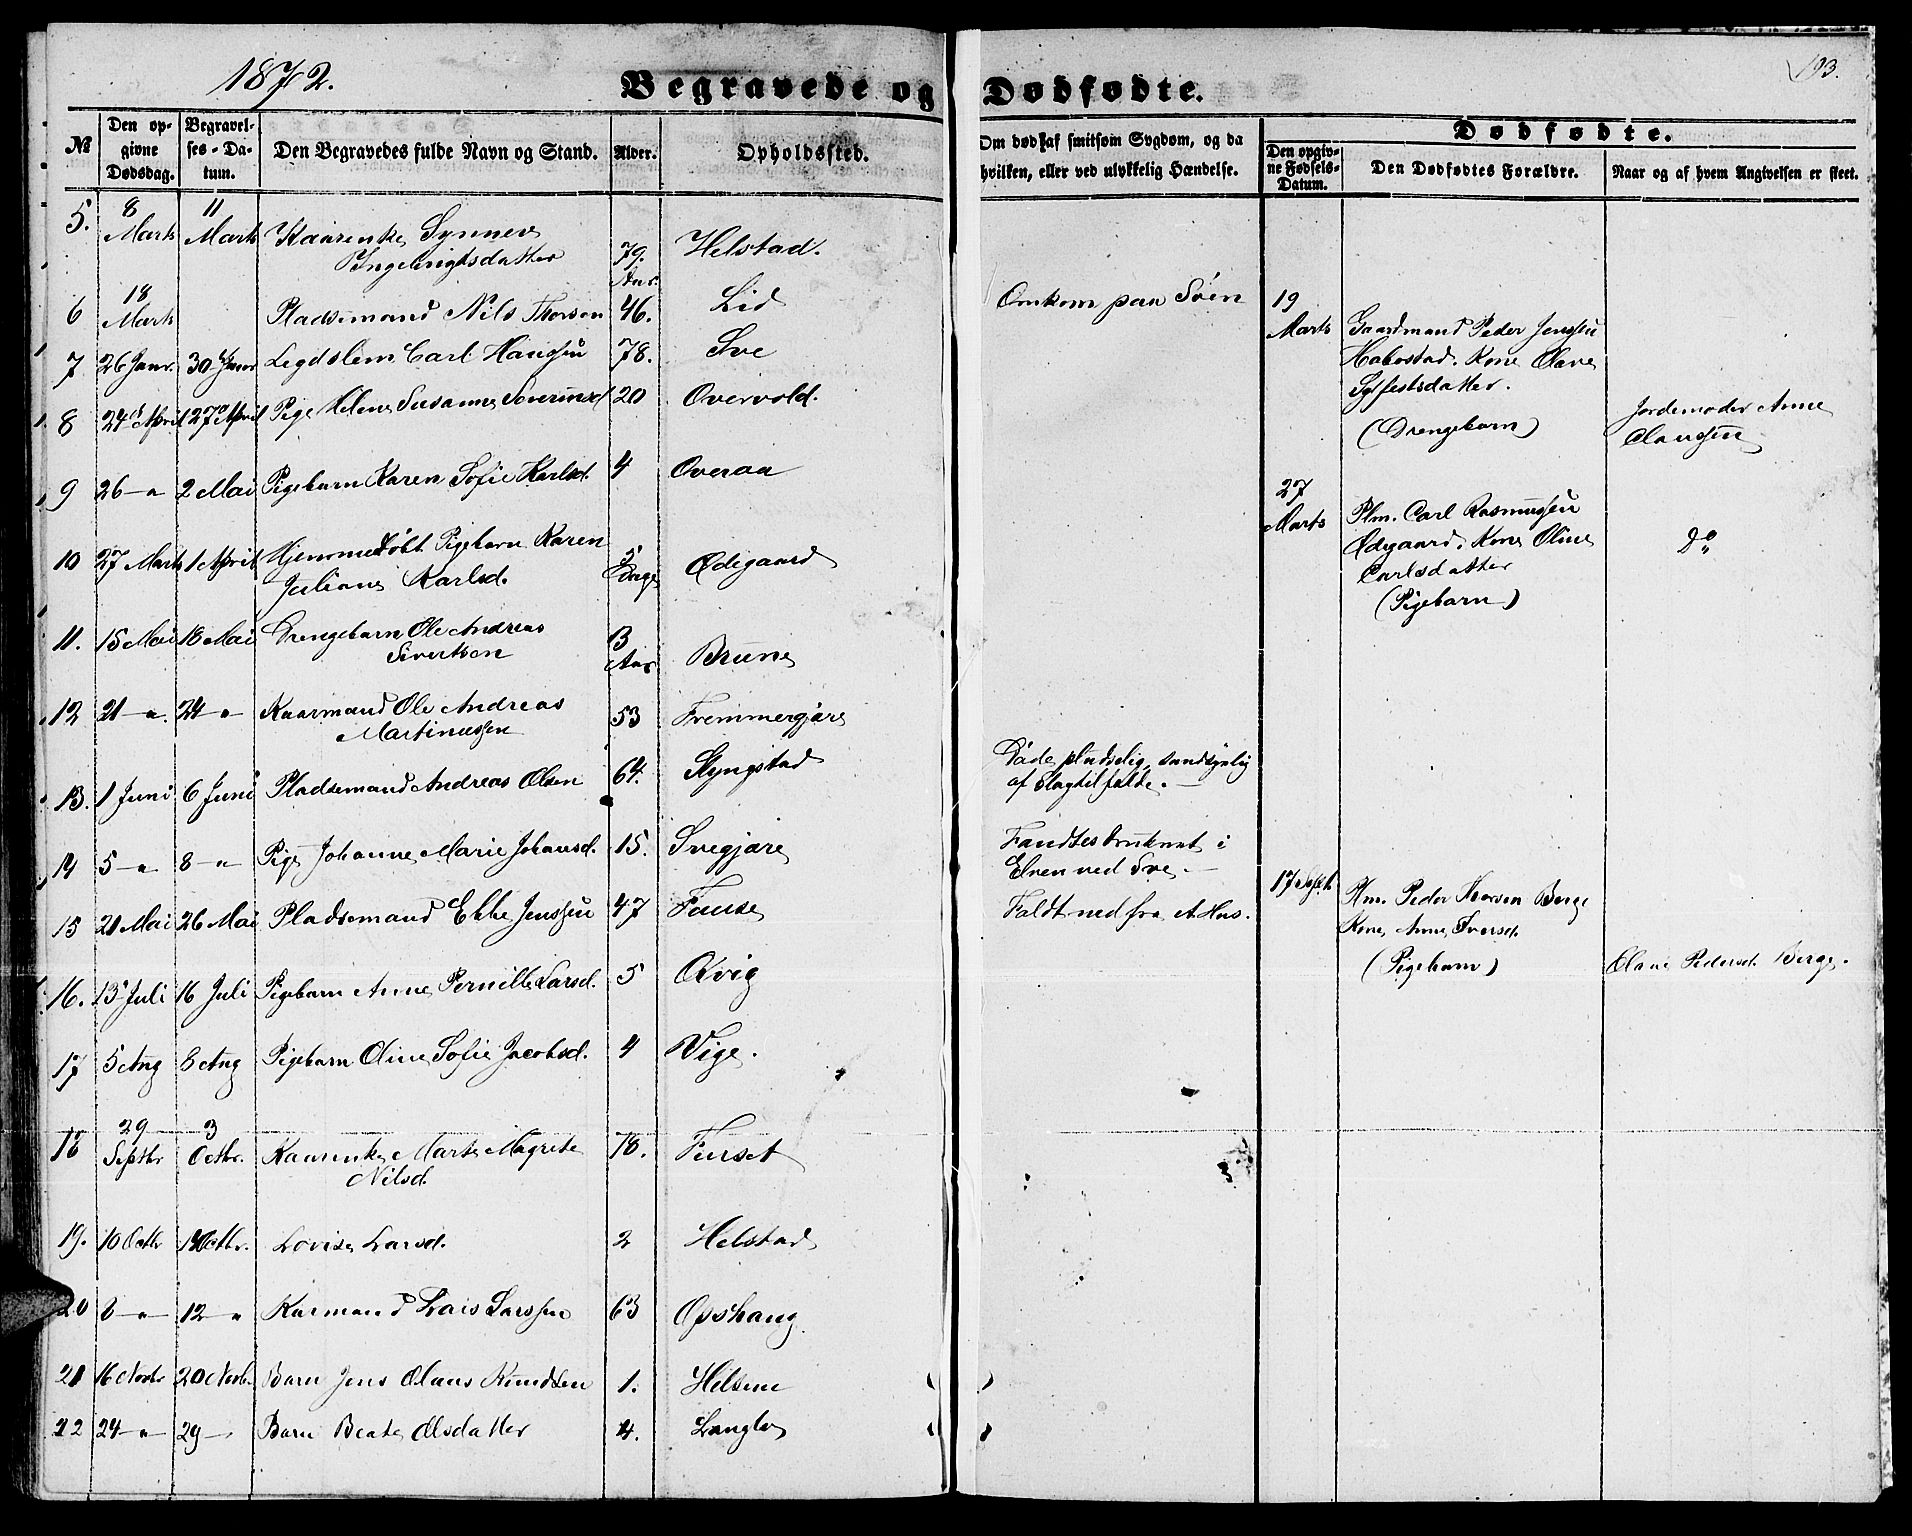 1872.
Begravede og Dødfødte.
193.
№
Den opgivne Dødsdag.
Begravelses-Datum.
Den Begravedes fulde Navn og Stand.
Alder.
Opholdssted.
Om død af smitsom Sygdom, og da hvilken, eller ved ulykkelig Hændelse.
Dødfødte.
Den opgivne Fødsels-Datum.
Den Dødfødtes Forældre.
Naar og af hvem Angivelsen er skeet.
5. 8 Marts 11 Marts Kaarenke Synneve
Ingebrigtsdatter 79. Aar. Helstad.
6 18 Marts Pladsemand Nils Thorsen 46. Lid Omkom paa Søen
7 26 Janr. 30 Janr Legdslem Carl Hansen 78. Sve
8 24 April 27 April Pige Helene Susanne Severinsd 20 Overvold.
9 26 — " 2 Mai Pigebarn Karen Sofie Karlsd. 4 Overaa
10 27 Marts 1 April Hjemmedøbt Pigebarn Karen
Juliane Karlsd. 5 Dage Ødegaard
11. 15 Mai 18 Mai Drengebarn Ole Andreas
Sivertsen 3 Aar Brune
12 21 — " 24 — " Kaarmand Ole Andreas
Martinussen 53 Fremmergjære
13. 1 Juni 6 Juni Pladsemand Andreas Olsen 64. Slyngstad Døde pludselig, sandsynlig
af Slagtilfælde. —
14 5 — " 8 — " Pige Johanne Marie Johansd. 15. Svegjære Fandtes druknet i
Elven ved Sve. —
15 21 Mai 26 Mai Pladsemand Ekke Jenssen 47 Fause Faldt ned fra et Hus.
16. 13 Juli 16 Juli Pigebarn Anne Pernille Larsd. 5 Qvig
17 5 Aug 8 Aug Pigebarn Oline Sofie Jacobsd. 4 Vige.
18 29 Septbr 3 Octbr. Kaarenke Marte Magrete
Nilsd. 78. Furset
19. 10 Octbr 14 Octbr. Lovise Larsd. 2 Helstad
20 8 — " 12 — " Karmand Lars Larssen 63 Opshaug
21 16 Novbr 20 Novb. Barn Jens Olaus Knudsen 1. Helsem
22 24 — " 29 — Barn Beate Olsdatter 4. Langlo
19 Marts Gaardmand Peder Jenssen
Habostad. Kone Olave
Sylfestsdatter.
(Drengebarn) Jordemoder Anne
Claussen
27 Marts Plm. Carl Rasmussen
Ødegaard. Kone Oline
Carlsdatter
(Pigebarn) Do
17 Septb. Plm. Peder Thorsen Berge
Kone Anne Iversd.
(Pigebarn) Olave Pedersd. Berge.